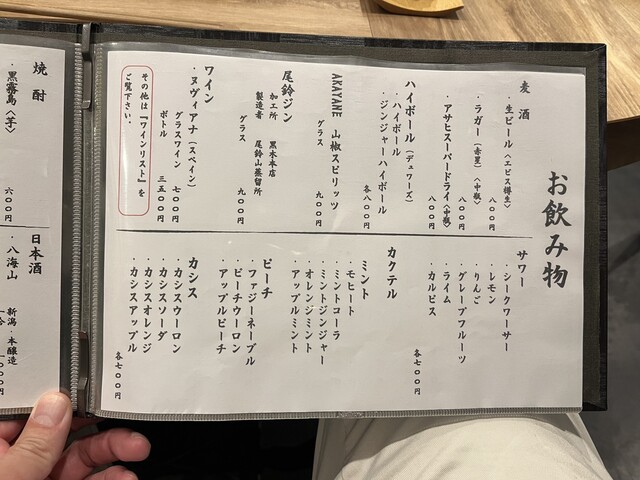 お飲み物
麦酒
・生ビール〈ヱビス樽生〉
八〇〇円
・ラガー（赤星）〈中瓶〉
八〇〇円
・アサヒスーパードライ〈中瓶〉
八〇〇円
ハイボール（デュワーズ）
・ハイボール
・ジンジャーハイボール
各八〇〇円
AKAYANE 山椒スピリッツ
グラス 九〇〇円
尾鈴ジン
加工所 黒木本店
製造者 尾鈴山蒸留所
グラス 九〇〇円
ワイン
・ヌヴィアナ（スペイン）
グラスワイン 七〇〇円
ボトル 三五〇〇円
その他は『ワインリスト』を
ご覧下さい。
サワー
・シークワーサー
・レモン
・りんご
・グレープフルーツ
・ライム
・カルピス
各七〇〇円
カクテル
ミント
・モヒート
・ミントコーラ
・ミントジンジャー
・オレンジミント
・アップルミント
ピーチ
・ファジーネーブル
・ピーチウーロン
・アップルピーチ
カシス
・カシスウーロン
・カシスソーダ
・カシスオレンジ
・カシスアップル
各七〇〇円
焼酎
・黒霧島〈芋〉
六〇〇円
日本酒
・八海山
新潟・本醸造
一合 一〇〇〇円